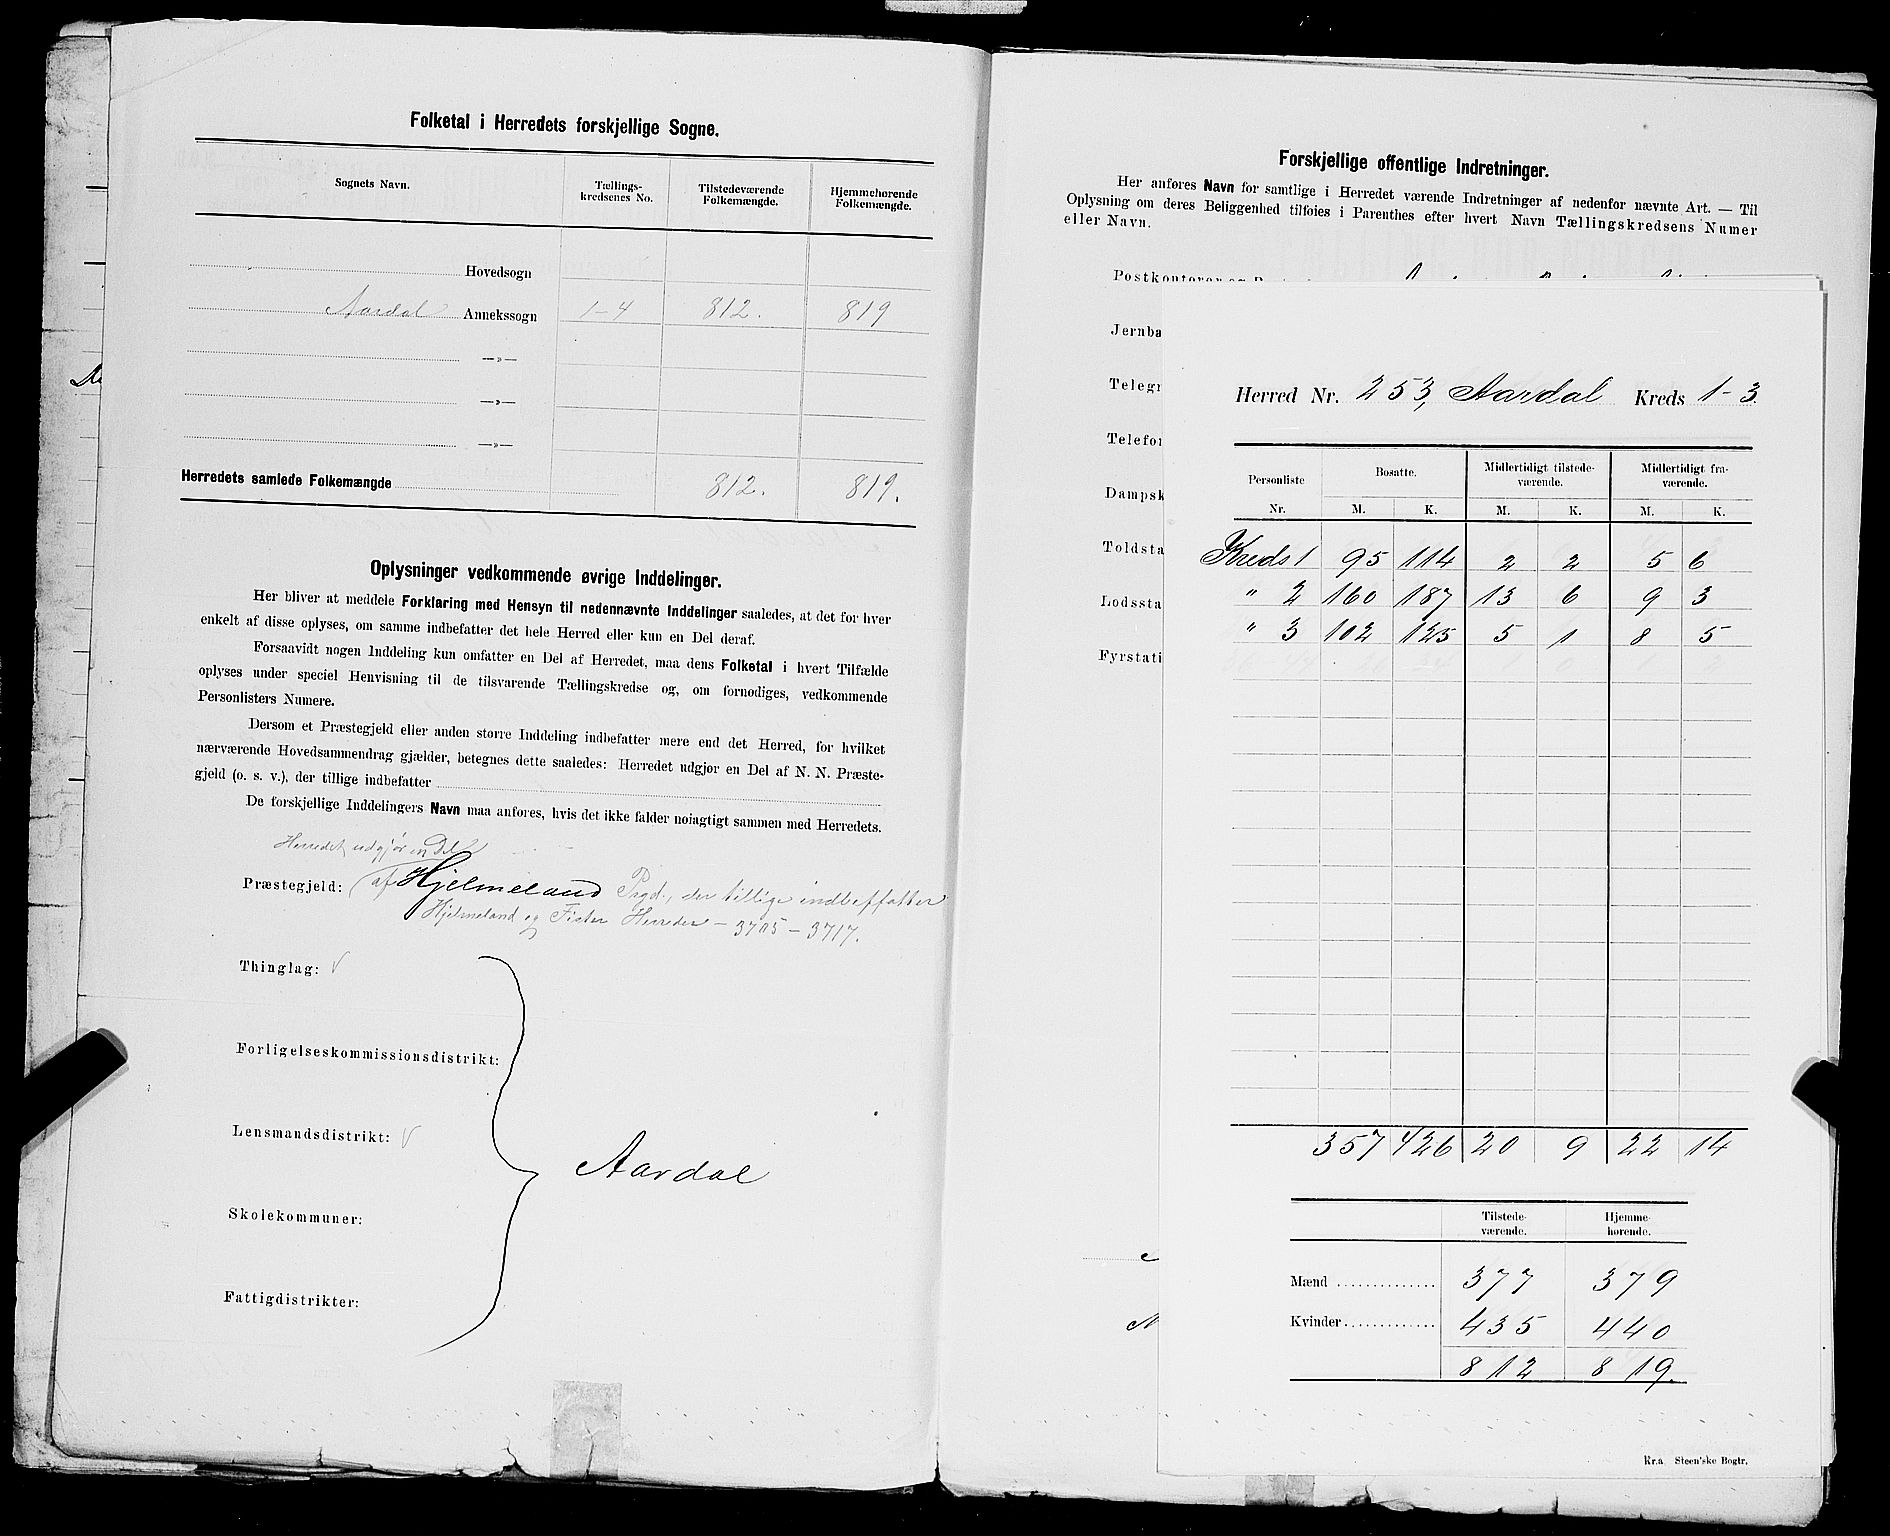 Folketal i Herredets forskjellige Sogne.
Sognets Navn. Tællings-kredsenes No. Tilstedeværende Folkemængde. Hjemmehørende Folkemængde.
Hovedsogn
Aardal Annekssogn 1-4 812. 819
—»—
—»—
—»—
Herredets samlede Folkemængde 812. 819.
Oplysninger vedkommende øvrige Inddelinger.
Her bliver at meddele Forklaring med Hensyn til nedennævnte Inddelinger saaledes, at det for hver
enkelt af disse oplyses, om samme indbefatter det hele Herred eller kun en Del deraf.
Forsaavidt nogen Inddeling kun omfatter en Del af Herredet, maa dens Folketal i hvert Tilfælde
oplyses under speciel Henvisning til de tilsvarende Tællingskredse og, om fornødiges, vedkommende
Personlisters Numere.
Dersom et Præstegjeld eller anden større Inddeling indbefatter mere end det Herred, for hvilket
nærværende Hovedsammendrag gjælder, betegnes dette saaledes: Herredet udgjør en Del af N. N. Præste-
gjeld (o. s. v.), der tillige indbefatter
De forskjellige Inddelingers Navn maa anføres, hvis det ikke falder nøiagtigt sammen med Herredets.
Herredet udgjør en Del
Præstegjeld: af Hjelmeland Prgd., der tillige indbeffatter
Hjelmeland og Fister Herreder – 3705 – 3717.
Thinglag: V
Forligelseskommissionsdistrikt:
Lensmandsdistrikt: V
Aardal
Skolekommuner:
Fattigdistrikter:
Forskjellige offentlige Indretninger.
Her anføres Navn for samtlige i Herredet værende Indretninger af nedenfor nævnte Art. — Til
Oplysning om deres Beliggenhed tilføies i Parenthes efter hvert Navn Tællingskredsens Numer
eller Navn.
Postkontorer og
Jernba
Telegr
Telefor
Dampsk
Toldsta
Lodssta
Fyrstati
Herred Nr. 253, Aardal Kreds 1-3
Personliste Nr. Bosatte. Midlertidigt tilstede-værende. Midlertidigt fra-værende.
M. K. M. K. M. K.
Kreds 1 95 114 2 2 5 6
" 2 160 187 13 6 9 3
" 3 102 125 5 1 8 5
357 426 20 9 22 14
Tilstede-værende. Hjemme-hørende.
Mænd 377 379
Kvinder 435 440
812 819.
Kr.a Steen'ske Bogtr.